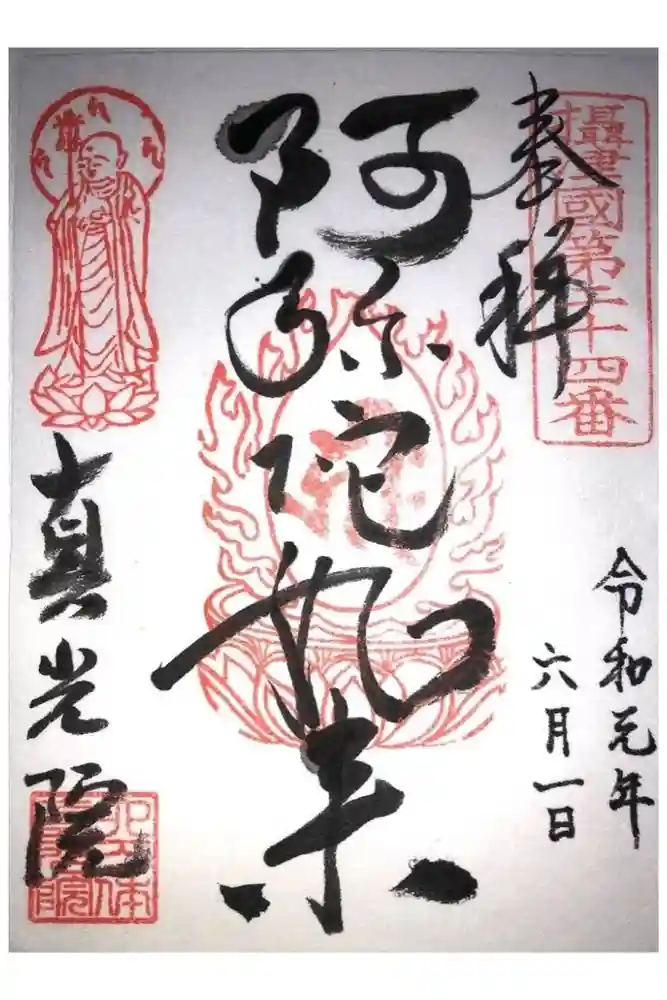 奉拝
攝津國第二十四番
令和元年
六月一日
阿弥陀如来
真光院